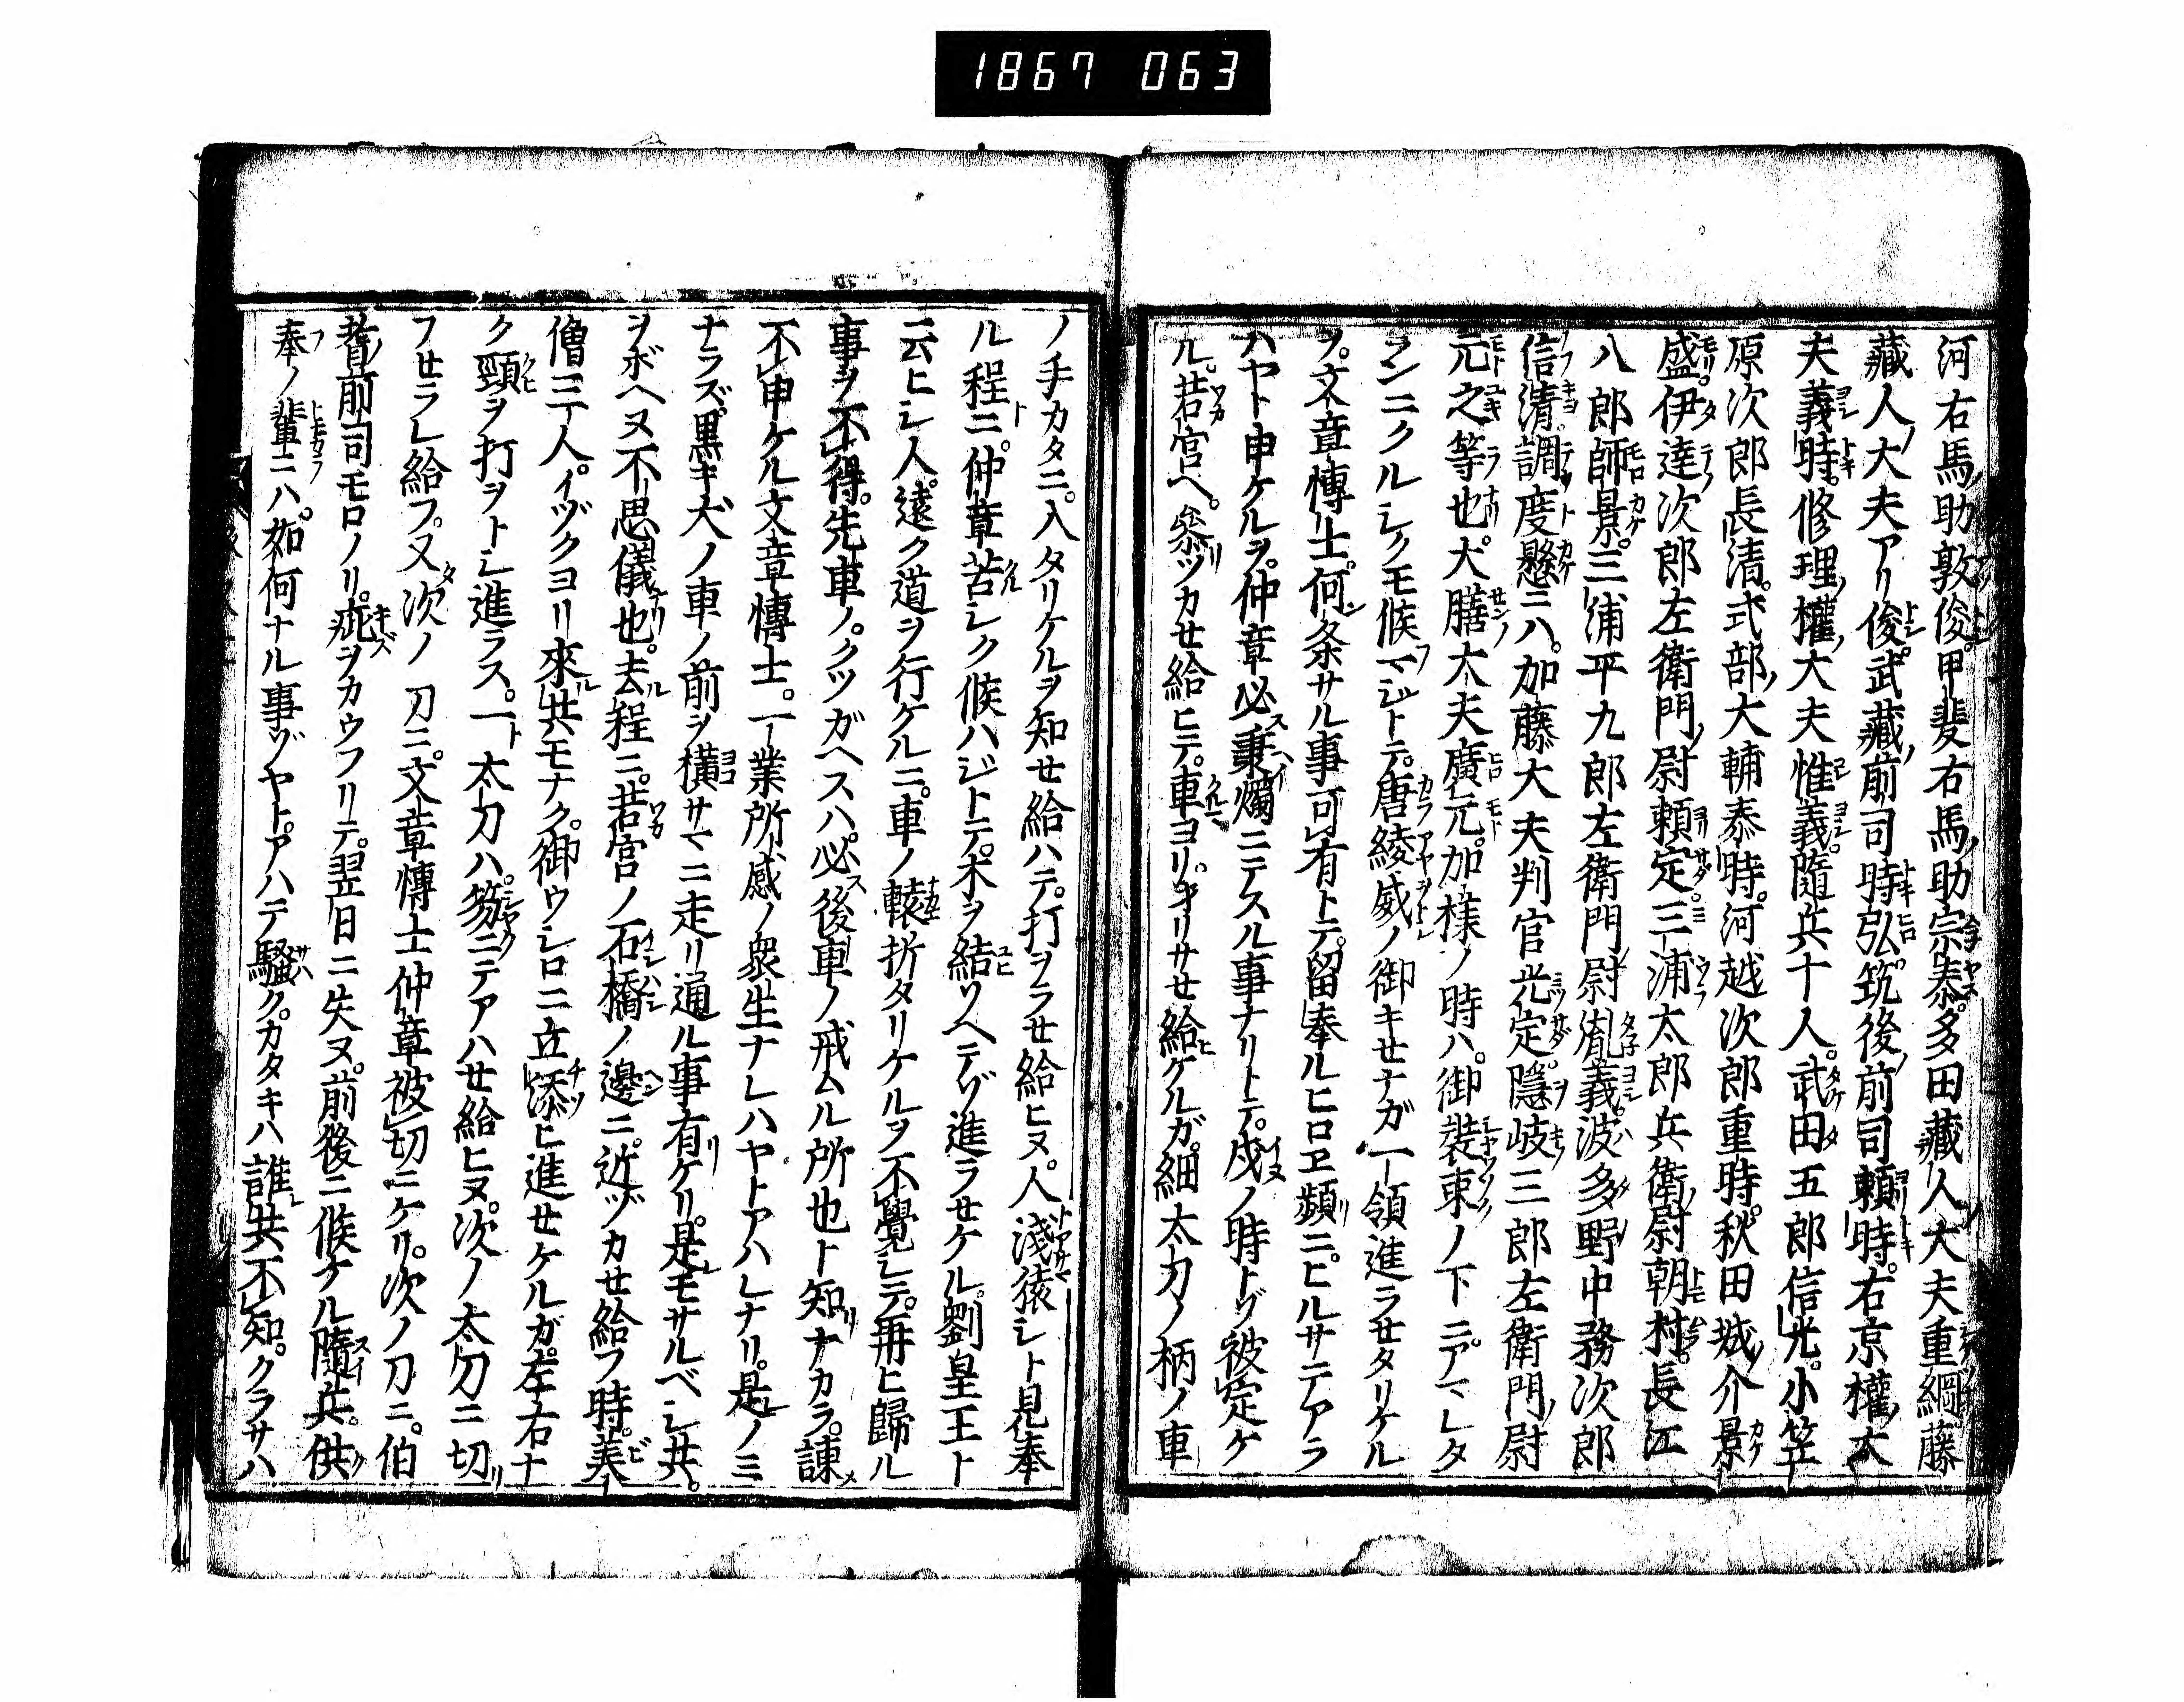 1867 063
河右馬助敦俊。甲斐右馬助宗泰。多田藏人大夫重綱。藤
藏人大夫アリ俊。武藏前司時弘。筑後前司頼時。右京權大
夫義時。修理權大夫惟義。隨兵十人。武田五郎信光。小笠
原次郎長清。式部大輔泰時。河越次郎重時。秋田城介景
盛。伊達次郎左衛門尉頼定。三浦太郎兵衛尉朝村。長江
八郎師景。三浦平九郎左衛門尉胤義。波多野中務次郎
信清。調度懸ニハ。加藤大夫判官光定。隱岐三郎左衛門尉
元之等也。大膳大夫廣元。加樣ノ時ハ。御裝束ノ下ニ。アマレタ
ランニクルシクモ候マジトテ。唐綾威ノ御キセナガ一領進ラセタリケル
ヲ。文章博士。何条サル事可有トテ。留奉ルヒロヱ頻ニ。ヒルサテアラ
ハヤト申ケルヲ。仲章必秉燭ニテスル事ナリトテ。戌ノ時トゾ被定ケ
ル。若宮ヘ。參ツカセ給ヒテ。車ヨリ。ヲリサセ給ケルガ。細太刀ノ柄ノ車
ノ手カタニ。入タリケルヲ知セ給ハテ。打ヲラセ給ヒヌ。人淺猿シト見奉
ル程ニ。仲章苦シク候ハジトテ。木ヲ結ソヘテゾ進ラセケル。劉皇王ト
云ヒシ人。遠ク道ヲ行ケルニ。車ノ轅折タリケルヲ不覺シテ。再ヒ歸ル
事ヲ不得。先車ノ。クツガヘスハ。必後車ノ戒ムル所也ト知ナカラ。諫
不申ケル文章博士。一業所感ノ衆生ナレハヤトアハレナリ。是ノミ
ナラズ。黒キ犬ノ車ノ前ヲ横サマニ走リ通ル事有ケリ。是モサルベシ共。
ヲボヘヌ不思儀也。去程ニ。若宮ノ石橋ノ邊ニ。近ヅカセ給フ時。美
僧三人。イヅクヨリ來共モナク。御ウシロニ立添ヒ進セケルガ。左右ナ
ク頸ヲ打ヲトシ進ラス。一太刀ハ。笏ニテアハセ給ヒヌ。次ノ太刀ニ切
フセラレ給フ。又次ノ刀ニ。文章博士仲章被切ニケリ。次ノ刀ニ。伯
耆前司モロノリ。疵ヲカウフリテ。翌日ニ失ヌ。前後ニ候ケル隨兵。供
奉ノ輩ニハ。如何ナル事ゾヤト。アハテ騷ク。カタキハ誰共不知。クラサハ